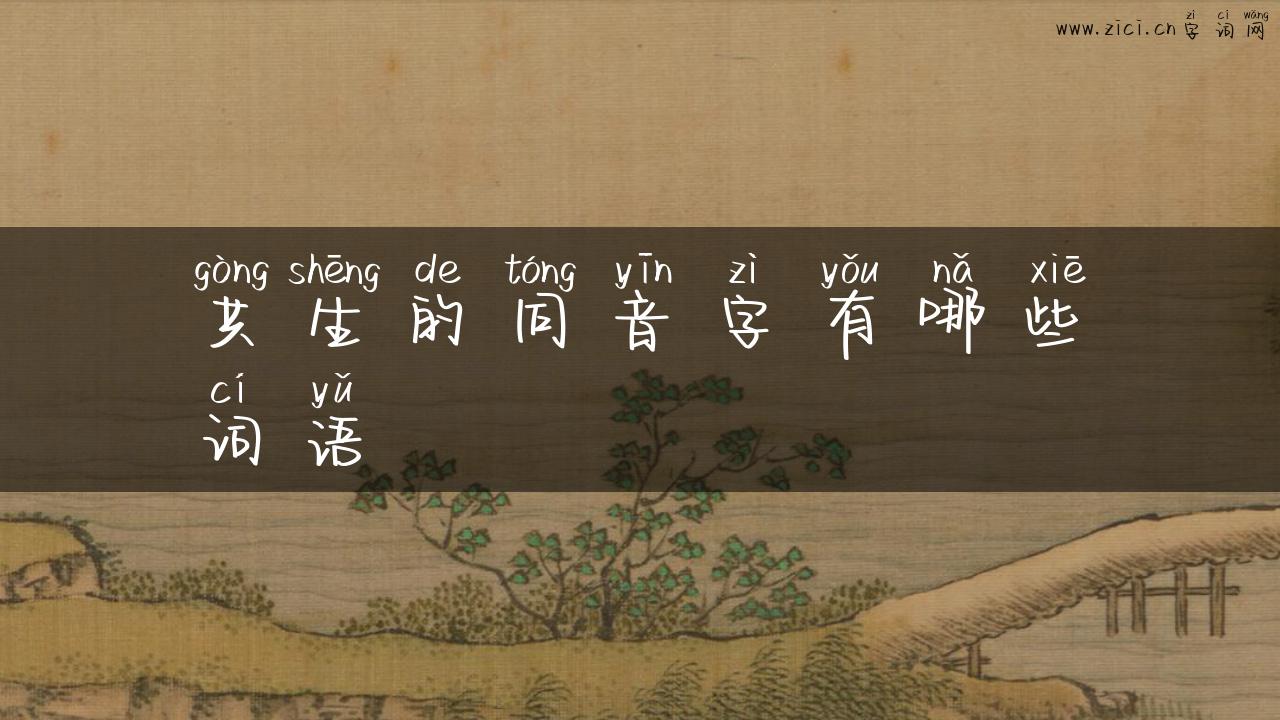 zì cí wǎng
www.zici.cn字词网
gòng shēng de tóng yīn zì yǒu nǎ xiē
共生的同音字有哪些
cí yǔ
词语